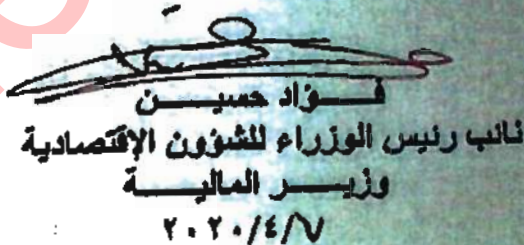 فـــؤاد حسيـــن
نائب رئيس الوزراء للشؤون الاقتصادية
وزيـــر الماليـــة
٢٠٢٠/٤/٧